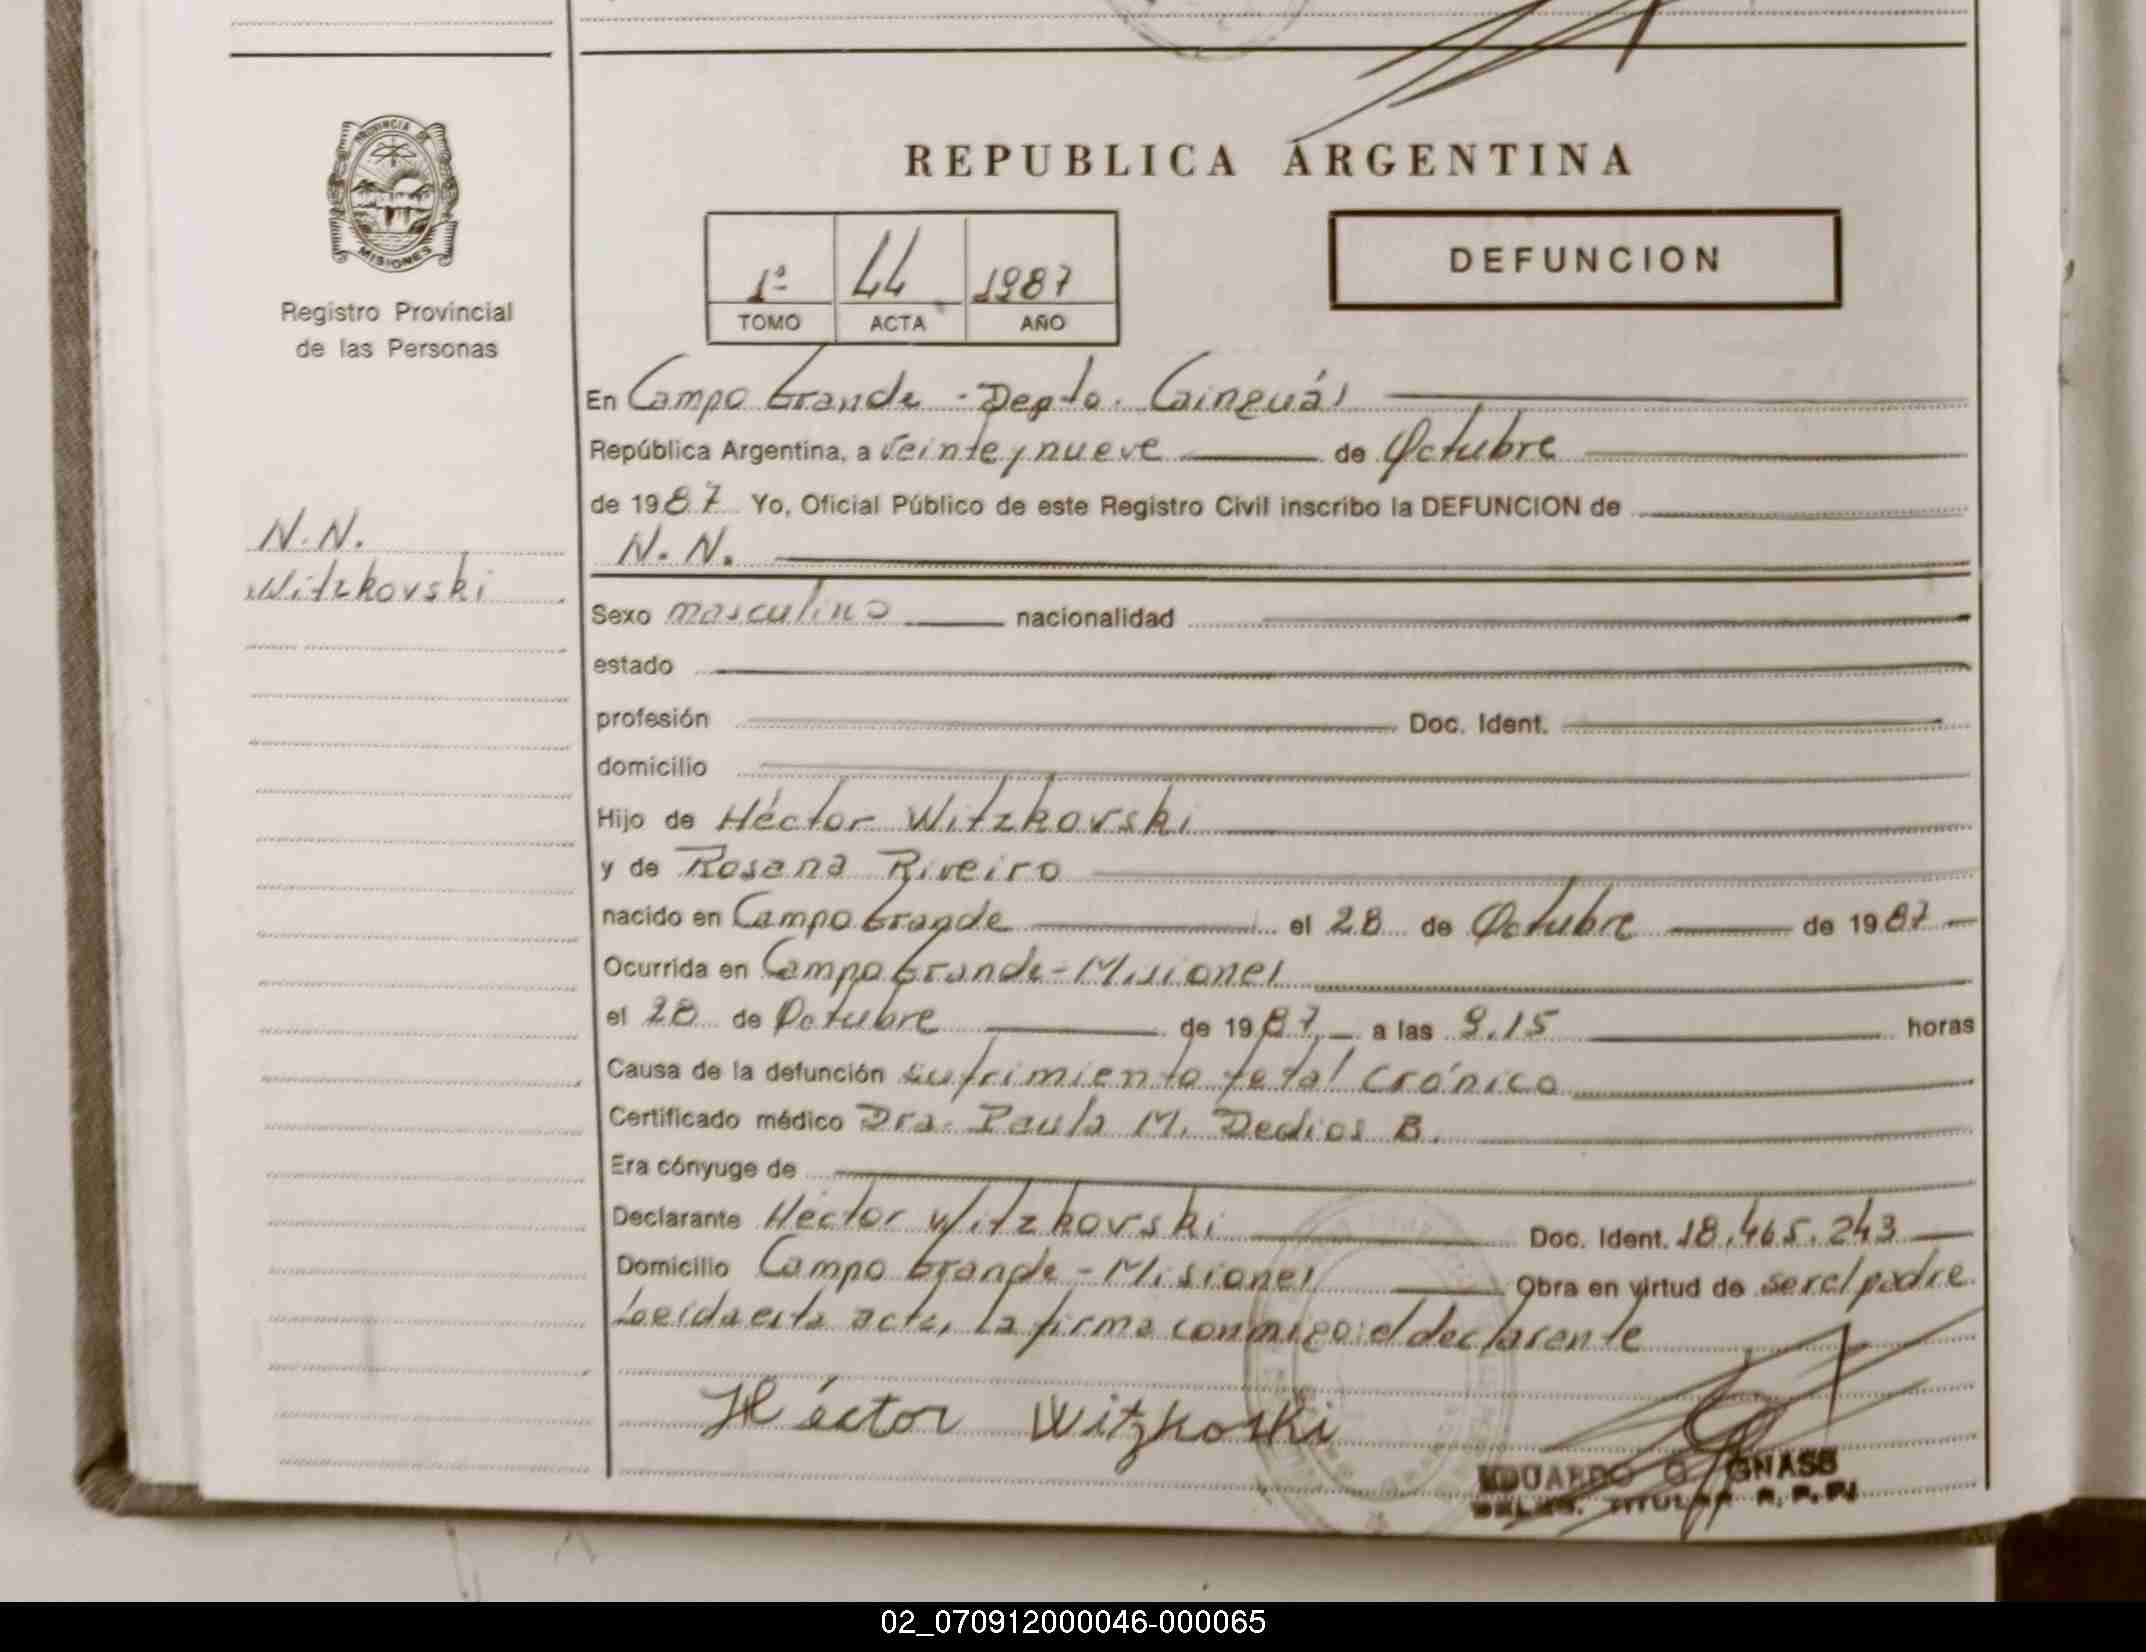 PROVINCIA DE
MISIONES
Registro Provincial
de las Personas
N.N.
Witzkovski
REPUBLICA ARGENTINA
1ª 44 1987
TOMO ACTA AÑO
DEFUNCION
En Campo Grande - Depto. Cainguás
República Argentina, a veinte y nueve de Octubre
de 1987 Yo, Oficial Público de este Registro Civil inscribo la DEFUNCION de
N. N.
Sexo masculino nacionalidad
estado
profesión Doc. Ident.
domicilio
Hijo de Héctor Witzkovski
y de Rosana Riveiro
nacido en Campo Grande el 28 de Octubre de 1987
Ocurrida en Campo Grande - Misiones
el 28 de Octubre de 1987 a las 9.15 horas
Causa de la defunción sufrimiento fetal crónico
Certificado médico Dra. Paula M. Dedios B.
Era cónyuge de
Declarante Héctor Witzkovski Doc. Ident. 18.465.243
Domicilio Campo Grande - Misiones Obra en virtud de ser el padre
Leída esta acta, la firma conmigo: el declarante
Héctor Witzkoski
EDUARDO O. GNASS
TITULAR R. P. P.
02_070912000046-000065